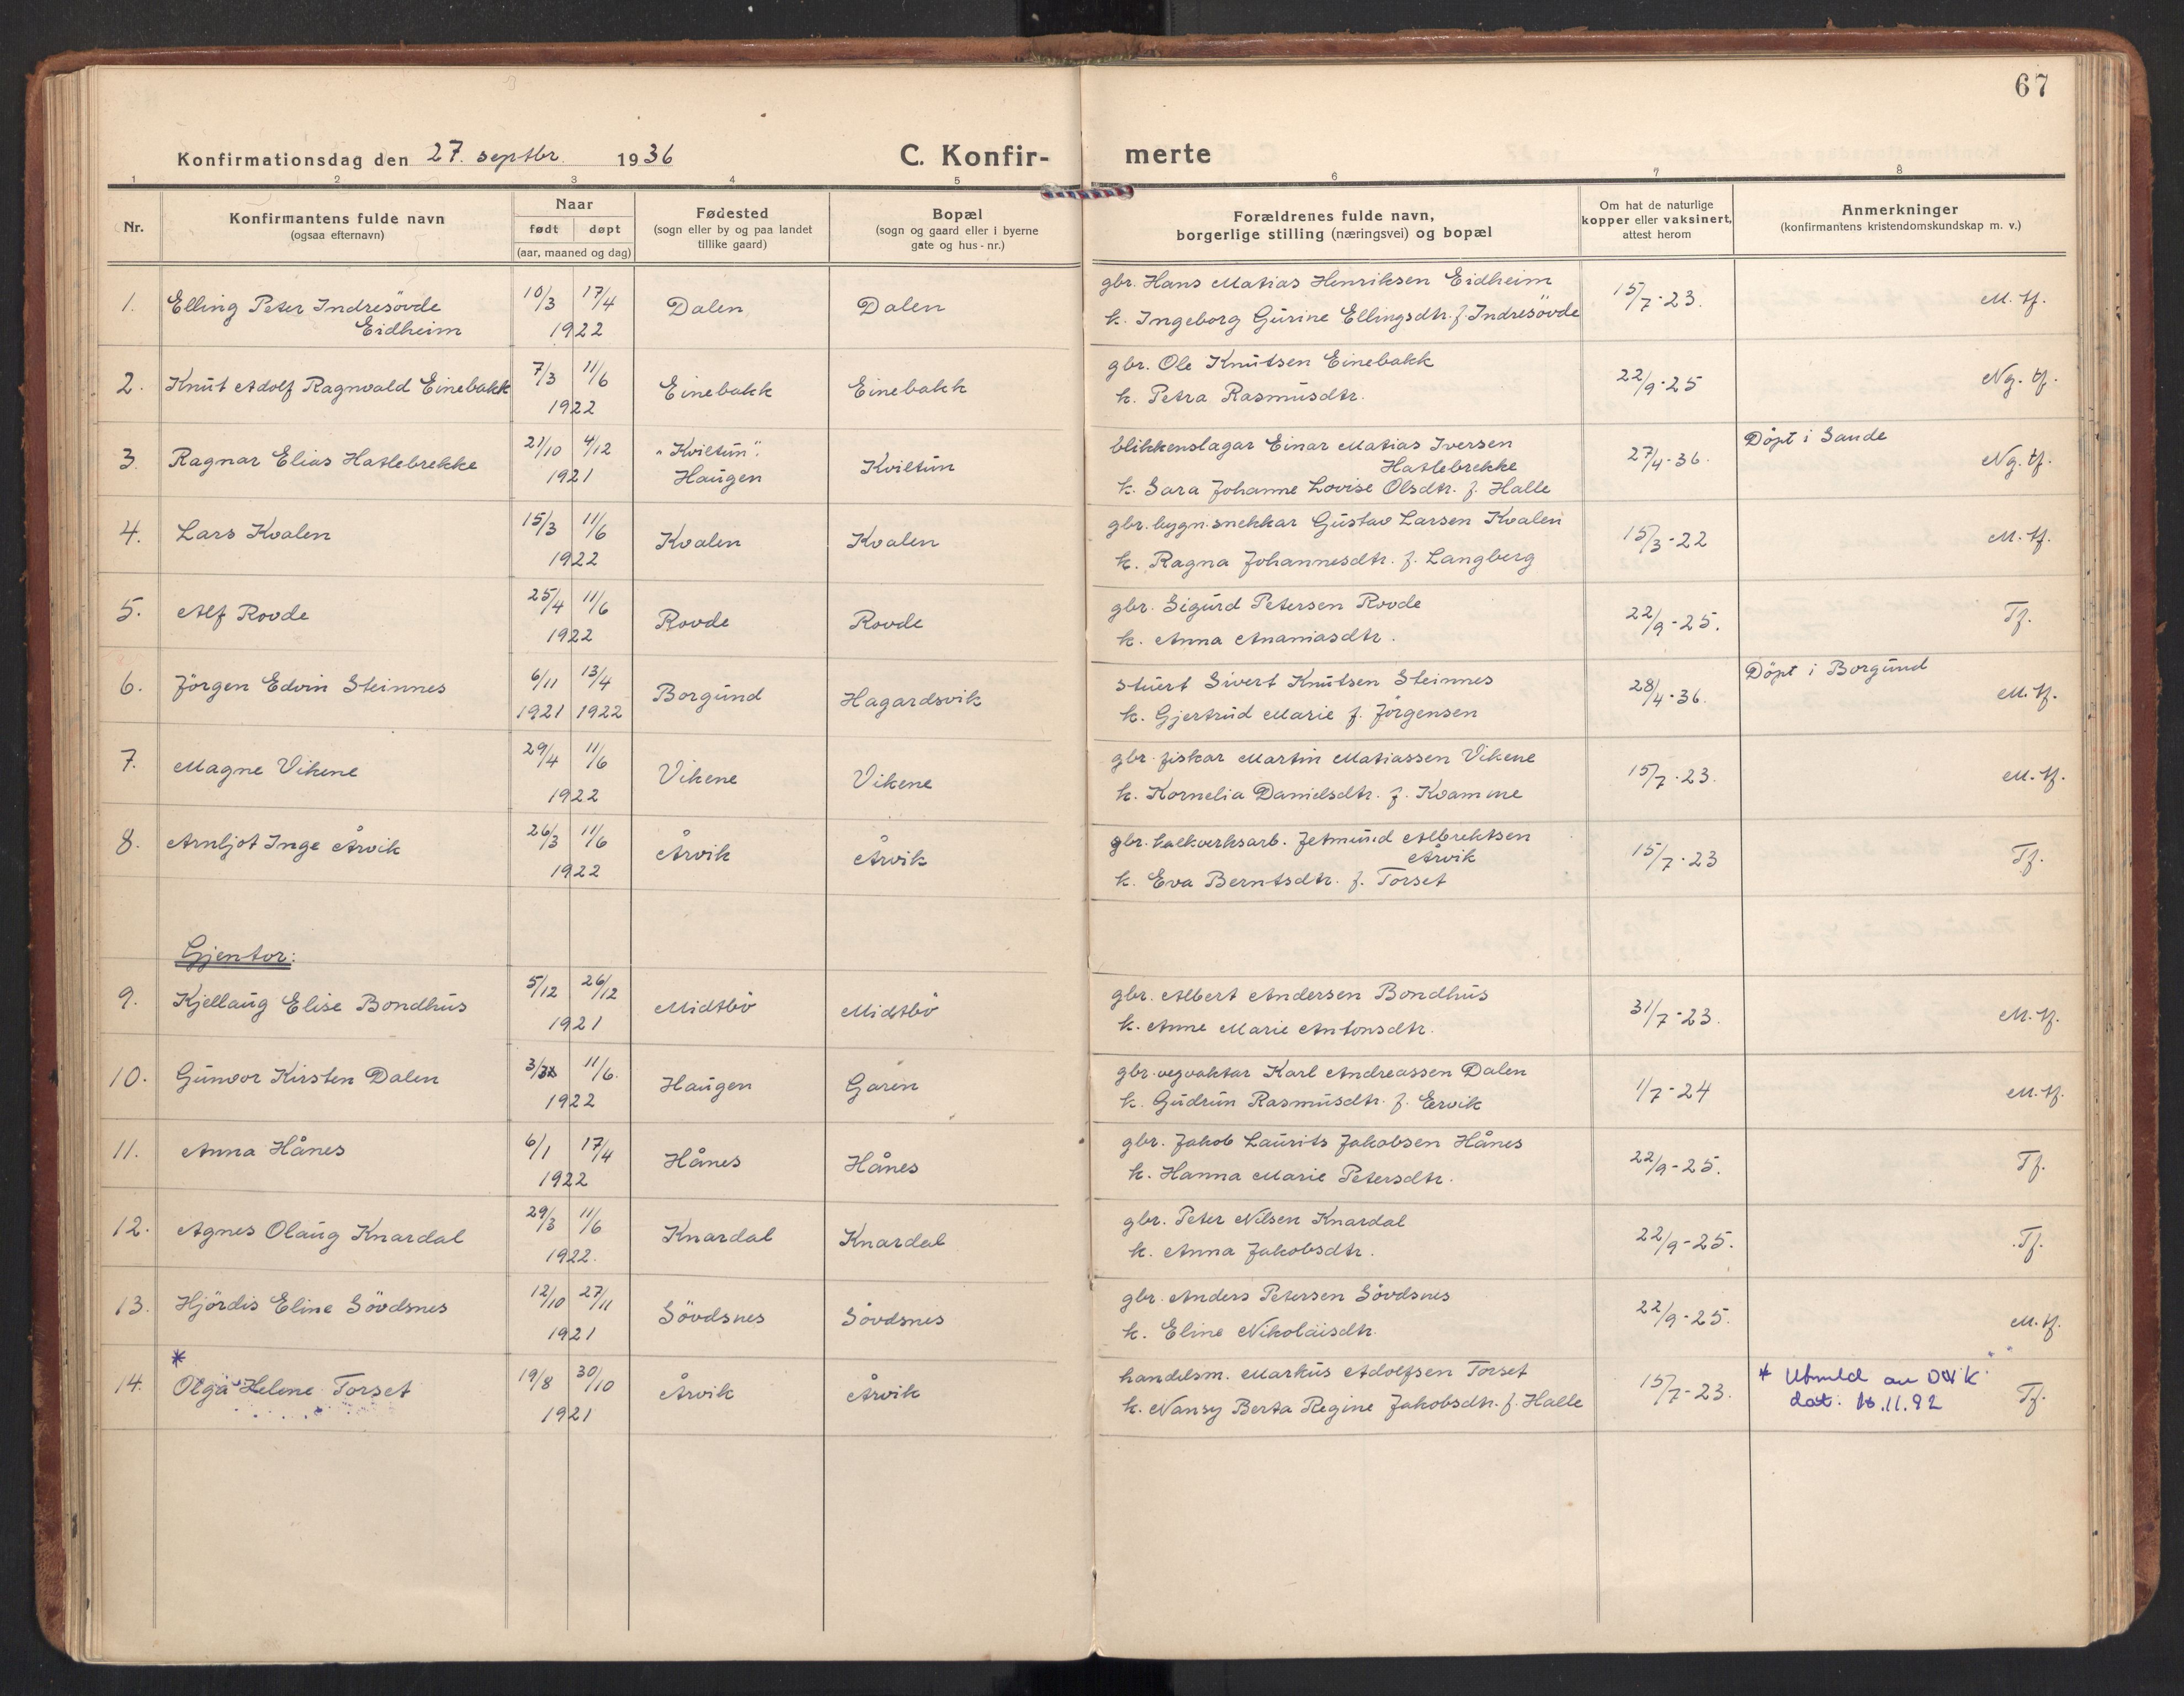 67
Konfirmationsdag den 27. septbr. 1936 C. Konfir- merte
1 2 3 4 5 6 7 8
Nr.
Konfirmantens fulde navn
(ogsaa efternavn)
Naar
født døpt
(aar, maaned og dag)
Fødested
(sogn eller by og paa landet
tillike gaard)
Bopæl
(sogn og gaard eller i byerne
gate og hus-nr.)
Forældrenes fulde navn,
borgerlige stilling (næringsvei) og bopæl
Om hat de naturlige
kopper eller vaksinert,
attest herom
Anmerkninger
(konfirmantens kristendomskundskap m. v.)
1. Elling Peter Indresövde 10/3 17/4 Dalen Dalen gbr. Hans Matias Henriksen Eidheim 15/7-23. M. tf.
Eidheim 1922 k. Ingeborg Gurine Ellingsdtr. f. Indresövde
2. Knut Adolf Ragnvald Einebakk 7/3 11/6 Einebakk Einebakk gbr. Ole Knutsen Einebakk 22/9-25 Ng. tf.
1922 k. Petra Rasmusdtr.
3. Ragnar Elias Hatlebrekke 21/10 4/12 "Kviltun". Kviltun blikkenslagar Einar Matias Iversen 27/4-36. Döpt i Sande Ng. tf.
1921 Haugen Hatlebrekke
k. Sara Johanne Lovise Olsdtr. f. Halle
4. Lars Kvalen 15/3 11/6 Kvalen Kvalen gbr. bygn.snekkar Gustav Larsen Kvalen 15/3-22 M. tf.
1922 k. Ragna Johannesdtr. f. Langberg
5. Alf Rovde 25/4 11/6 Rovde Rovde gbr. Sigurd Petersen Rovde 22/9-25. Tf.
1922 k. Anna Ananiasdtr.
6. Jörgen Edvin Steinnes 6/11 13/4 Borgund Hagardsvik stuert Sivert Knutsen Steinnes 28/4-36. Döpt i Borgund M. tf.
1921 1922 k. Gjertrud Marie f. Jörgensen
7. Magne Vikene 29/4 11/6 Vikene Vikene gbr. fiskar Martin Matiassen Vikene 15/7-23. M. tf.
1922 k. Kornelia Danielsdtr. f. Kvamme
8. Arnljot Inge Årvik 26/3 11/6 Årvik Årvik gbr. kalkverksarb. Jetmund Albrektsen 15/7-23 Tf.
1922 Årvik
k. Eva Berntsdtr. f. Torset
Gjentor:
9. Kjellaug Elise Bondhus 5/12 26/12 Midtbö Midtbö gbr. Albert Andersen Bondhus 31/7-23. M. tf.
1921 k. Anne Marie Antonsdtr.
10. Gunvor Kirsten Dalen 3/3 11/6. Haugen Garen gbr. vegvaktar Karl Andreassen Dalen 1/7-24 M. tf.
1922 k. Gudrun Rasmusdtr. f. Eervik
11. Anna Hånes 6/1 17/4 Hånes Hånes gbr. Jakob Laurits Jakobsen Hånes 22/9-25. Tf.
1922 k. Hanna Marie Petersdtr.
12. Agnes Olaug Knardal 29/3 11/6 Knardal Knardal gbr. Peter Nilsen Knardal 22/9-25. Tf.
1922. k. Anna Jakobsdtr.
13. Hjördis Eline Sövdsnes 12/10 27/11 Sövdsnes Sövdsnes gbr. Anders Petersen Sövdsnes 22/9-25. M. tf.
1921 k. Eline Nikolaisdtr.
*
14. Olga Helene Torset 19/8 30/10 Årvik Årvik handelsm. Markus Adolfsen Torset 15/7-23. * Utmeld av DNK Tf.
1921 k. Nansy Berta Regine Jakobsdtr. f. Halle dat. .11.92